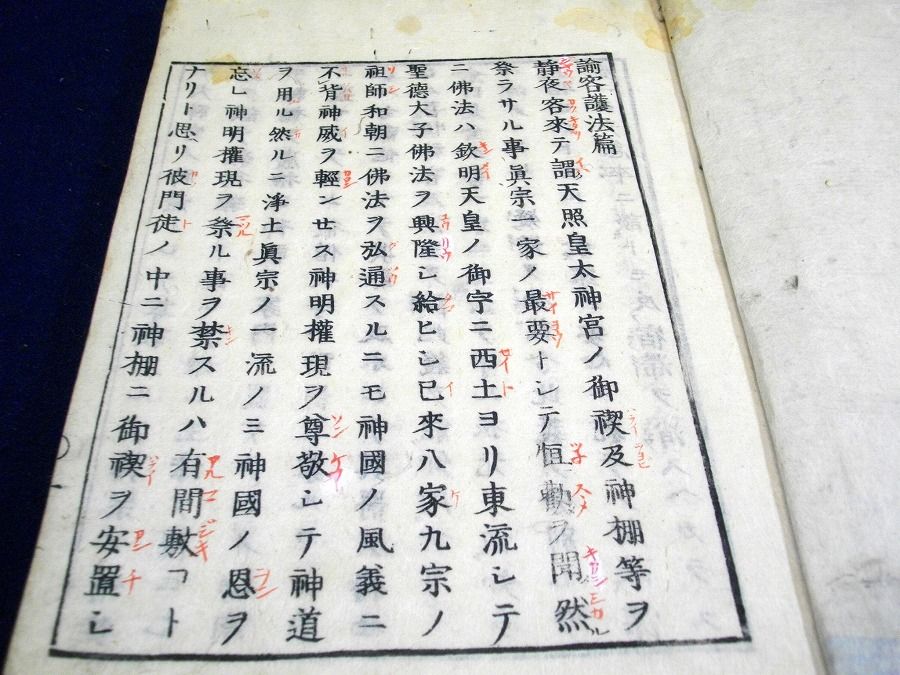 諭客護法篇
静夜客來テ謂天照皇太神宮ノ御禊及神棚等ヲ
祭ラサル事眞宗一家ノ最要トシテ恒勸ヲ聞然
ニ佛法ハ欽明天皇ノ御宇ニ西土ヨリ東流シテ
聖德大子佛法ヲ興隆シ給ヒシ已來八家九宗ノ
祖師和朝ニ佛法ヲ弘通スルニモ神國ノ風義ニ
不背神威ヲ輕ンセス神明權現ヲ尊敬シテ神道
ヲ用ル然ルニ淨土眞宗ノ一流ノミ神國ノ恩ヲ
忘レ神明權現ヲ祭ル事ヲ禁スルハ有間敷コト
ナリト思リ彼門徒ノ中ニ神棚ニ御禊ヲ安置シ